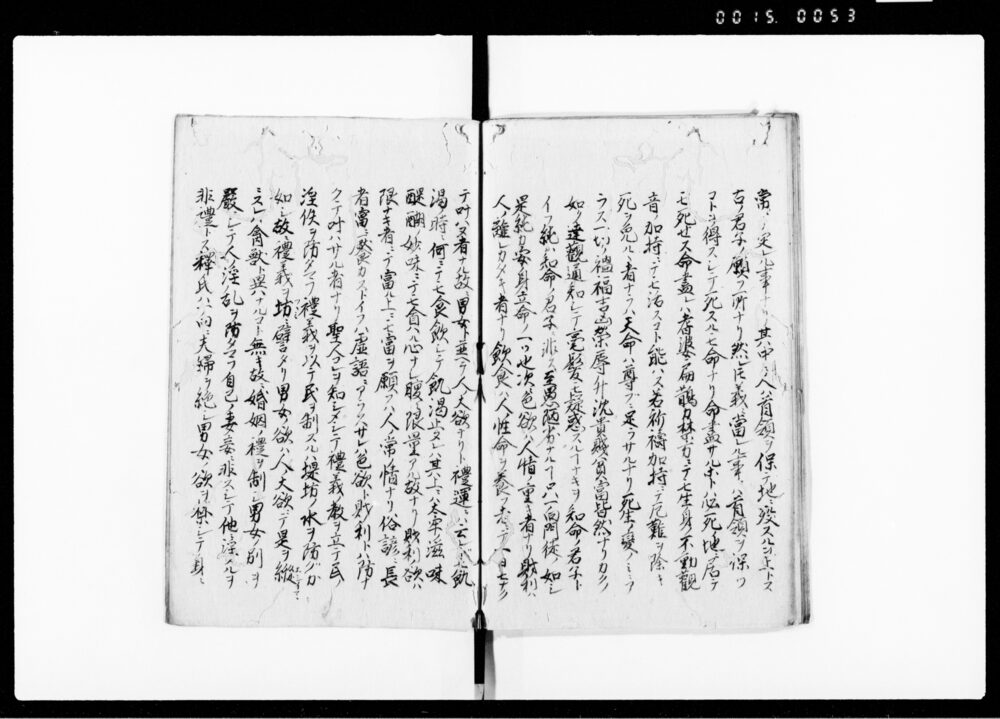 0015.0053
常ニ定レル事ナリ其中ニ人ハ首領ヲ保テ地ニ歿スルヲ上トス
古ノ君子ノ願フ所ナリ然レ𪜈義ニ當レル事ニハ首領ヲ保ツ
コトヲ得スシテ死スルモ命ナリ命盡サレハ必死ノ地ニ居テ
モ死セス命盡レハ耆婆扁鵲カ林カニテモ生身ノ不動觀
音ノ加持ニテモ活スコト能ハス若祈禱加持ニテ厄難ヲ除キ
死ヲ免ルヽ者ナラハ天命ハ尊フニ足ラサルナリ死生ノ變ノミニア
ラス一切ノ禍福吉凶榮辱升沈貴賤貧富皆然ナリカクノ
如ク達觀通知シテ毫髪モ疑惑スルヿナキヲ知命ノ君子ト
イフ純ハ知命ノ君子ニ非ス至愚陋劣ナルヿ只一向門徒ノ如シ
是純カ安身立命ノ一ツ也次ニ色欲ハ人情ノ重キ者ナリ財利ハ
人ノ離レカタキ者ナリ飲食ハ人ノ性命ヲ養フ者ニテ一日モナク
テ叶ハヌ者ナル故ニ男女ト並ヘテ人ノ大欲ナリト禮運ニハ云ヘ𪜈飢
渴ノ時ニ何ニテモ食飲シテ飢渴止タレハ其上ニハ太牢ノ滋味
醍醐ノ妙味ニテモ貪ハル心ナシ腹ニ限量アル故ナリ財利ノ欲ハ
限ナキ者ニテ富ル上ニモ富ヲ願フハ人ノ常情ナリ俗諺ニ長
者富ニ厭カストイフハ虚語ニアラス サレハ色欲ト財利トハ防カ
クテ叶ハサル者ナリ聖人是ヲ知シメシテ禮義ノ敎ヲ立テ民ノ
淫佚ヲ防タマフ禮義ヲ以テ民ヲ制スルハ堤坊ノ水ヲ防クカ
如シ故ニ禮義ヲ坊ニ譬タリ男女ノ欲ハ人ノ大欲ニテ是ヲ縱
ニスレハ禽獸ト異ナルヿ無キ故ニ婚姻ノ禮ヲ制シ男女ノ別ヲ
嚴ニシテ人ノ淫乱ヲ防タマフ自己ノ妻妾ニ非スシテ他ニ淫スルヲ
非禮トス釋氏ハ一向ニ夫婦ヲ絶シ男女ノ欲ヲ禁シテ身ニ